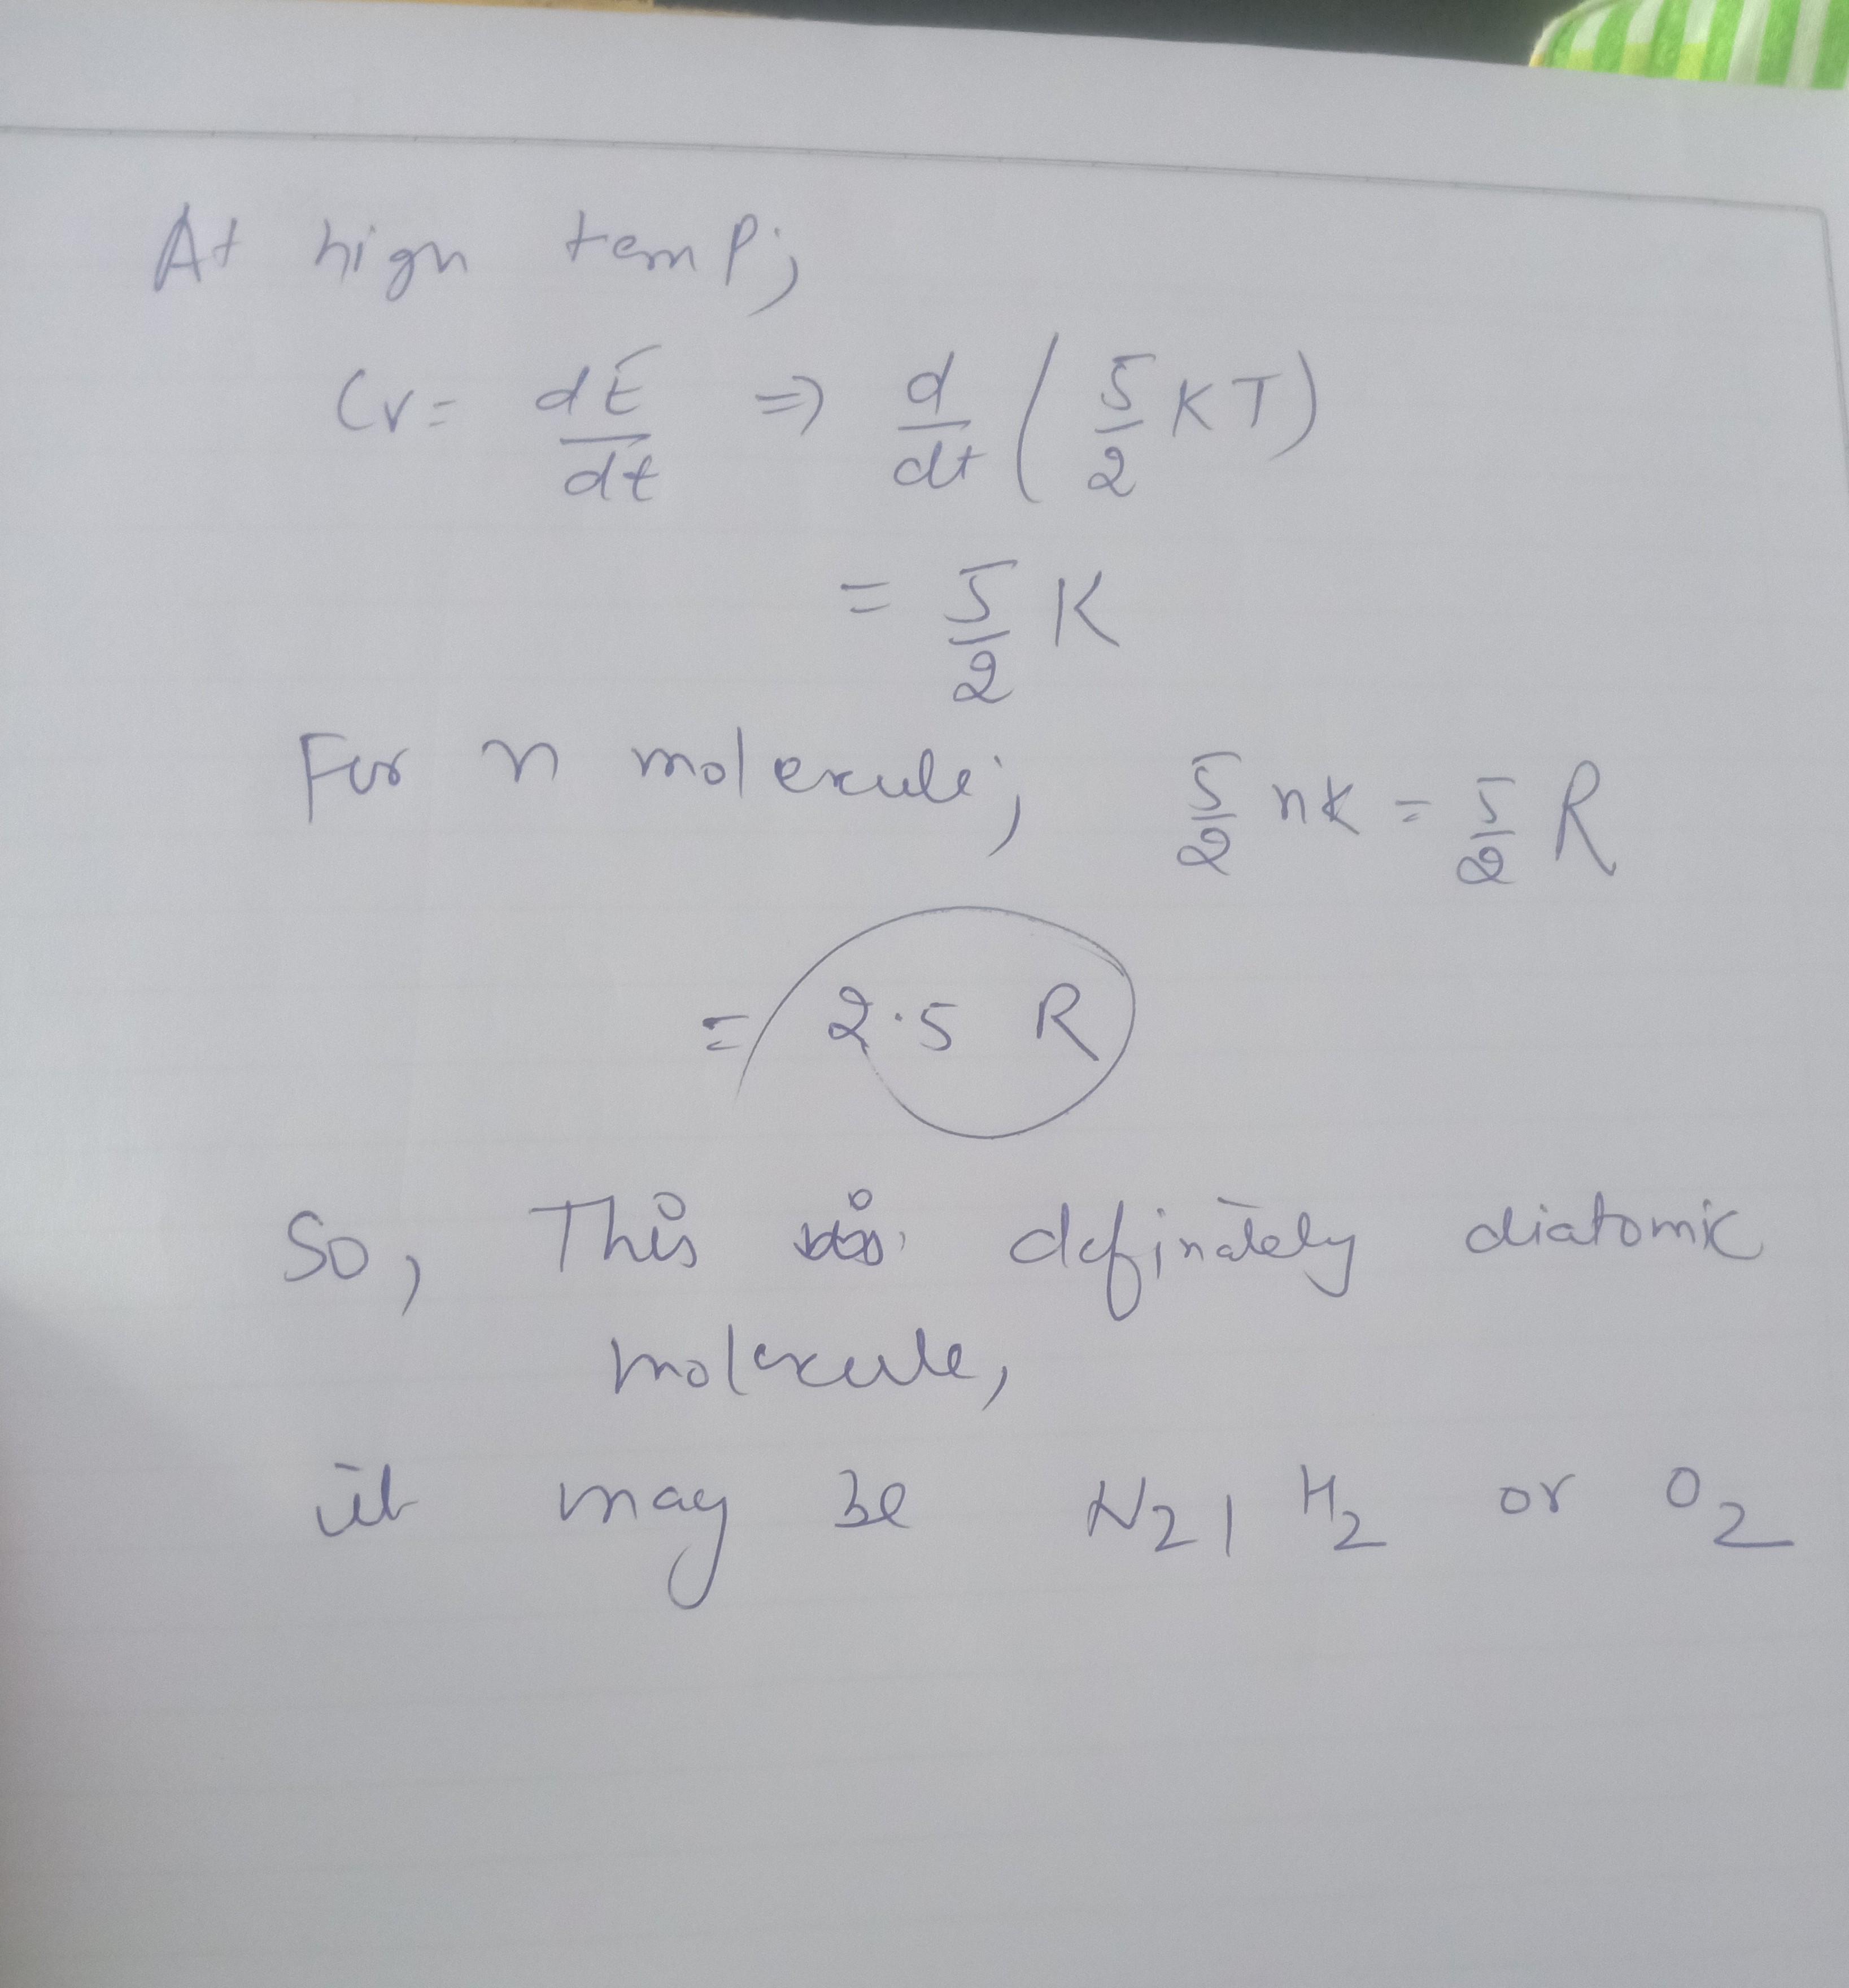 At high temp;
Cv = dE/dt => d/dt (5/2 KT)
= 5/2 K
For n molecule; 5/2 nk = 5/2 R
= 2.5 R
So, This is definately diatomic
molecule,
it may be N2, H2 or O2